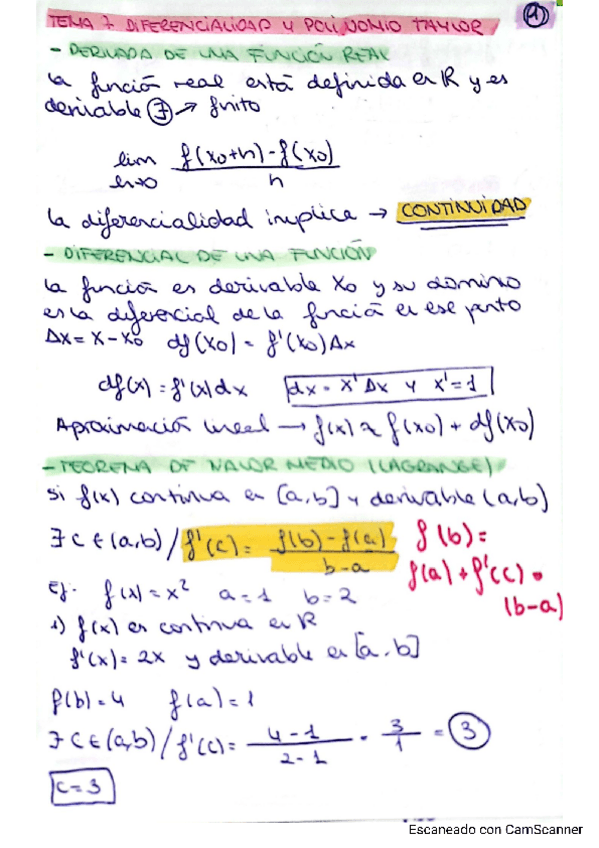 TEMA 7 DIFERENCIALIDAD Y POLINOMIO TAYLOR (1)
- DERIVADA DE UNA FUNCIÓN REAL
la función real está definida en R y es
derivable ∃ → finito
lim f(x0+h)-f(x0)
h→0 h
la diferencialidad implica → CONTINUIDAD
- DIFERENCIAL DE UNA FUNCIÓN
la función es derivable x0 y su dominio
es la diferencial de la función en ese punto
Δx = x - x0 df(x0) = f'(x0)Δx
df(x) = f'(x)dx dx = x'Δx y x'=1
Aproximación lineal → f(x) ≈ f(x0) + df(x0)
- TEOREMA DE VALOR MEDIO (LAGRANGE)
Si f(x) continua en [a,b] y derivable (a,b)
∃ c ∈ (a,b) / f'(c) = f(b)-f(a)
b-a
f(b) =
f(a) + f'(c) ·
(b-a)
Ej: f(x) = x² a=1 b=2
1) f(x) es continua en R
f'(x) = 2x y derivable en [a,b]
f(b) = 4 f(a) = 1
∃ c ∈ (a,b) / f'(c) = 4-1 = 3 = 3
2-1 1
c=3
Escaneado con CamScanner